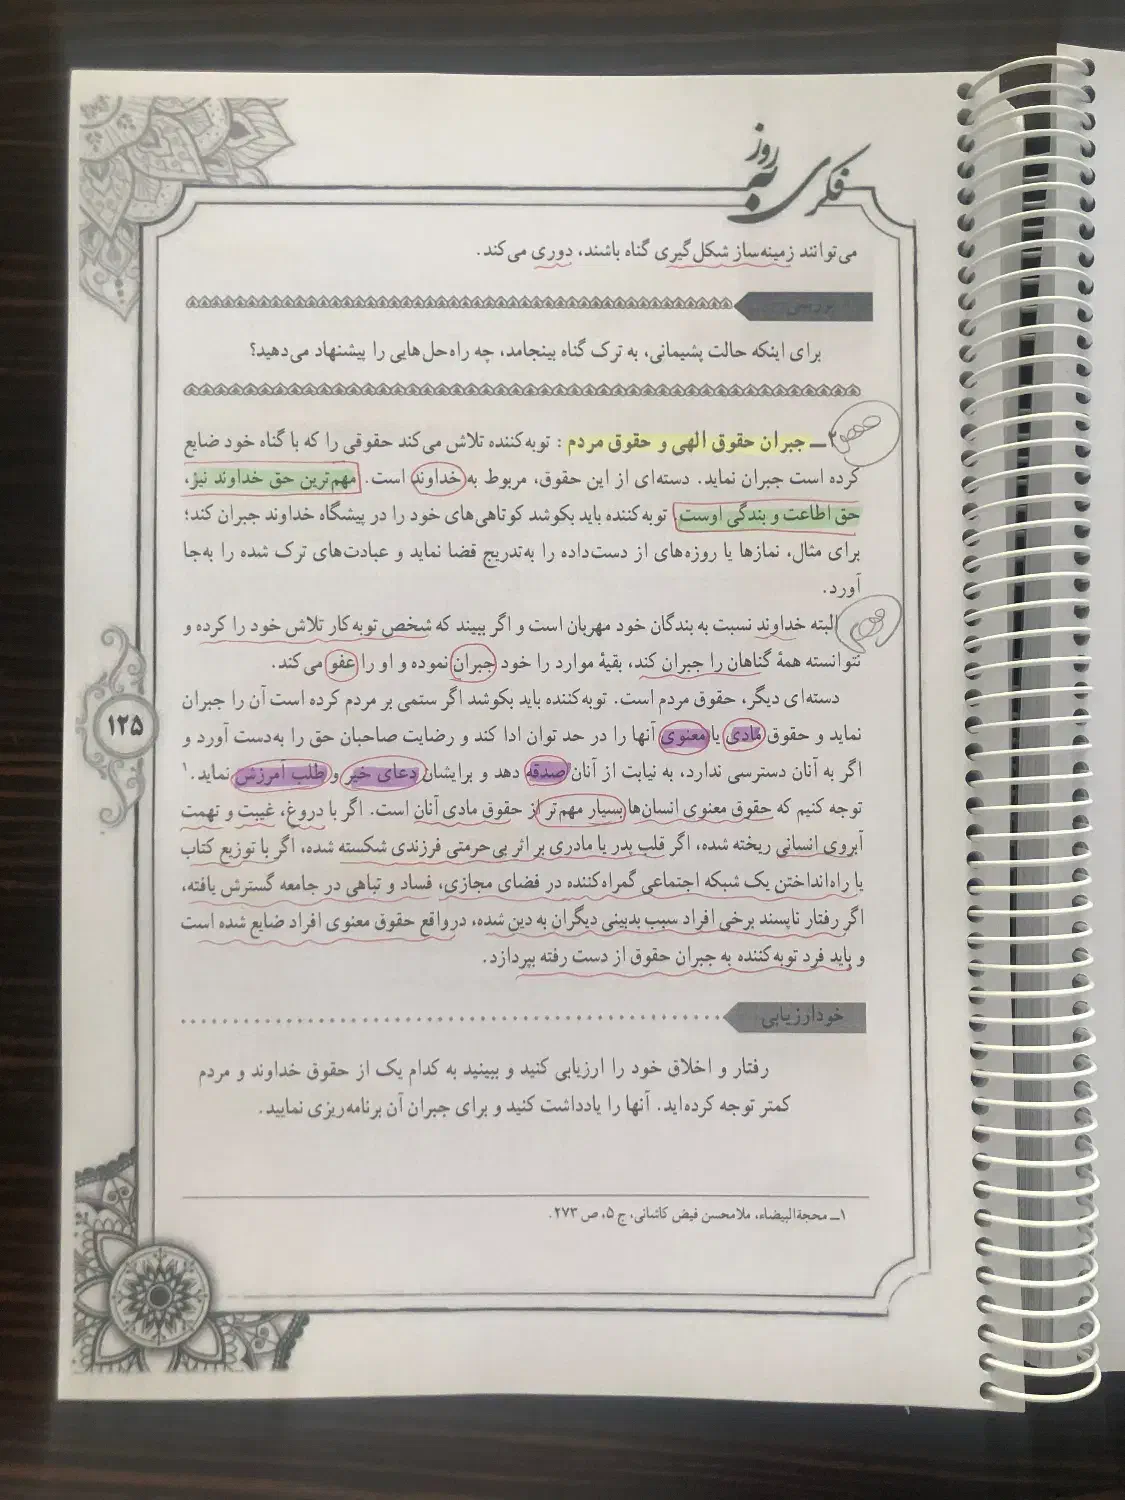 فکری به روز
می‌توانند زمینه‌ساز شکل‌گیری گناه باشند، دوری می‌کند.
بررسی
برای اینکه حالت پشیمانی، به ترک گناه بینجامد، چه راه‌حل‌هایی را پیشنهاد می‌دهید؟
۲ــ جبران حقوق الهی و حقوق مردم : توبه‌کننده تلاش می‌کند حقوقی را که با گناه خود ضایع
کرده است جبران نماید. دسته‌ای از این حقوق، مربوط به خداوند است. مهم‌ترین حق خداوند نیز،
حق اطاعت و بندگی اوست. توبه‌کننده باید بکوشد کوتاهی‌های خود را در پیشگاه خداوند جبران کند؛
برای مثال، نمازها یا روزه‌های از دست‌داده را به‌تدریج قضا نماید و عبادت‌های ترک شده را به‌جا
آورد.
البته خداوند نسبت به بندگان خود مهربان است و اگر ببیند که شخص توبه‌کار تلاش خود را کرده و
نتوانسته همهٔ گناهان را جبران کند، بقیهٔ موارد را خود جبران نموده و او را عفو می‌کند.
دسته‌ای دیگر، حقوق مردم است. توبه‌کننده باید بکوشد اگر ستمی بر مردم کرده است آن را جبران
نماید و حقوق مادی یا معنوی آنها را در حد توان ادا کند و رضایت صاحبان حق را به‌دست آورد و
اگر به آنان دسترسی ندارد، به نیابت از آنان صدقه دهد و برایشان دعای خیر و طلب آمرزش نماید.۱
توجه کنیم که حقوق معنوی انسان‌ها بسیار مهم‌تر از حقوق مادی آنان است. اگر با دروغ، غیبت و تهمت
آبروی انسانی ریخته شده، اگر قلب پدر یا مادری بر اثر بی‌حرمتی فرزندی شکسته شده، اگر با توزیع کتاب
یا راه‌انداختن یک شبکه اجتماعی گمراه‌کننده در فضای مجازی، فساد و تباهی در جامعه گسترش یافته،
اگر رفتار ناپسند برخی افراد سبب بدبینی دیگران به دین شده، درواقع حقوق معنوی افراد ضایع شده است
و باید فرد توبه‌کننده به جبران حقوق از دست رفته بپردازد.
خودارزیابی
رفتار و اخلاق خود را ارزیابی کنید و ببینید به کدام یک از حقوق خداوند و مردم
کمتر توجه کرده‌اید. آنها را یادداشت کنید و برای جبران آن برنامه‌ریزی نمایید.
۱ــ محجة‌البیضاء، ملامحسن فیض کاشانی، ج ۵، ص ۲۷۳.
۱۲۵